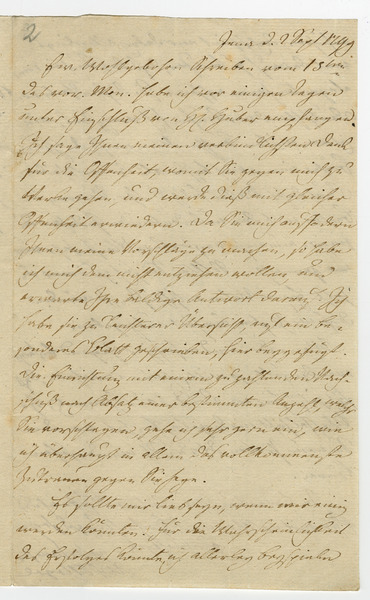 2
Jena d. 2 Sept 1799
Ew. Wohlgebohren Schreiben vom 13ten
des vor. Mon. habe ich vor einigen Tagen
unter Einschluß von H. Huber empfangen.
Ich sage Ihnen meinen verbindlichsten Dank
für die Offenheit, womit Sie gegen mich zu
Werke gehen, und werde dieß mit gleicher
Offenheit erwiedern. Da Sie mich auffodern
Ihnen meine Vorschläge zu machen, so habe
ich mich dem nicht entziehen wollen und
erwarte Ihre baldige Antwort darauf. Ich
habe sie zu leichterer Übersicht auf ein be-
sonderes Blatt geschrieben, hier beygefügt.
Die Einrichtung mit einem zu zahlenden Nach-
schuß nach Absatz einer bestimmten Anzahl, welche
Sie vorschlagen, gehe ich sehr gern ein, wie
ich überhaupt in allem das vollkommenste
Zutrauen gegen Sie hege.
Es sollte mir lieb seyn, wenn wir einig
werden könnten. Für die Wahrscheinlichkeit
des Erfolges könnte ich allerley Beyspiele